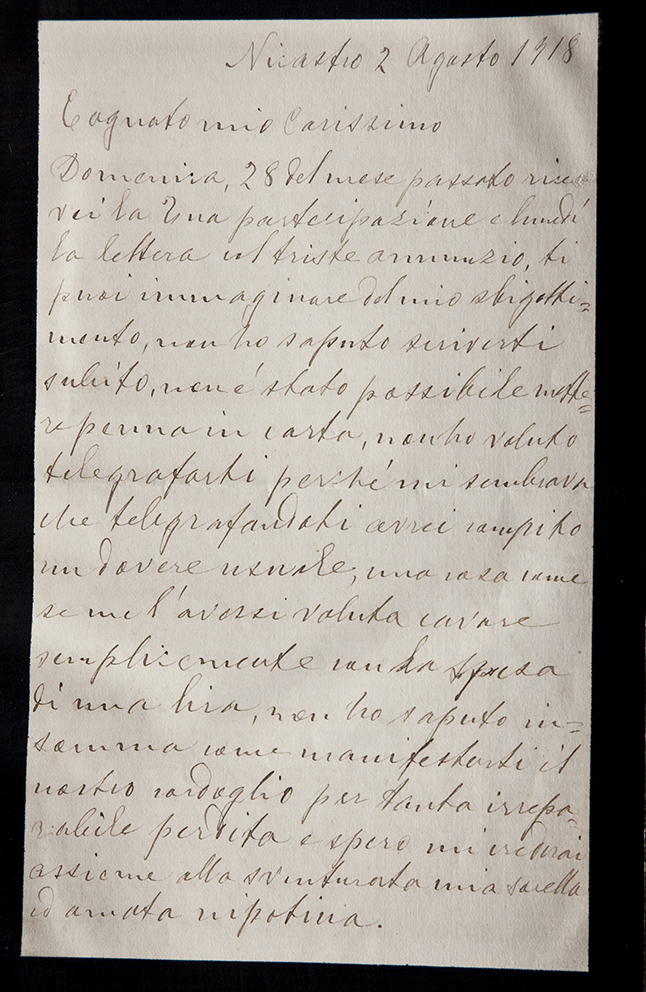 Nicastro 2 Agosto 1918
Cognato mio Carissimo
Domenica, 28 del mese passato rice=
vei la Tua partecipazione e lunedí
la lettera col triste annunzio, ti
puoi immaginare del mio sbigotti=
mento, non ho saputo scriverti
subito, non é stato possibile mette=
re penna in carta, non ho voluto
telegrafarti perché mi sembrava
che telegrafandoti avrei compito
un dovere usuale, una cosa come
se me l'avessi voluta cavare
semplicemente con la spesa
di una lira, non ho saputo in=
somma come manifestarti il
nostro cordoglio per tanta irrepa=
rabile perdita e spero mi crederai
assieme alla sventurata mia sorella
ed amata nipotina.